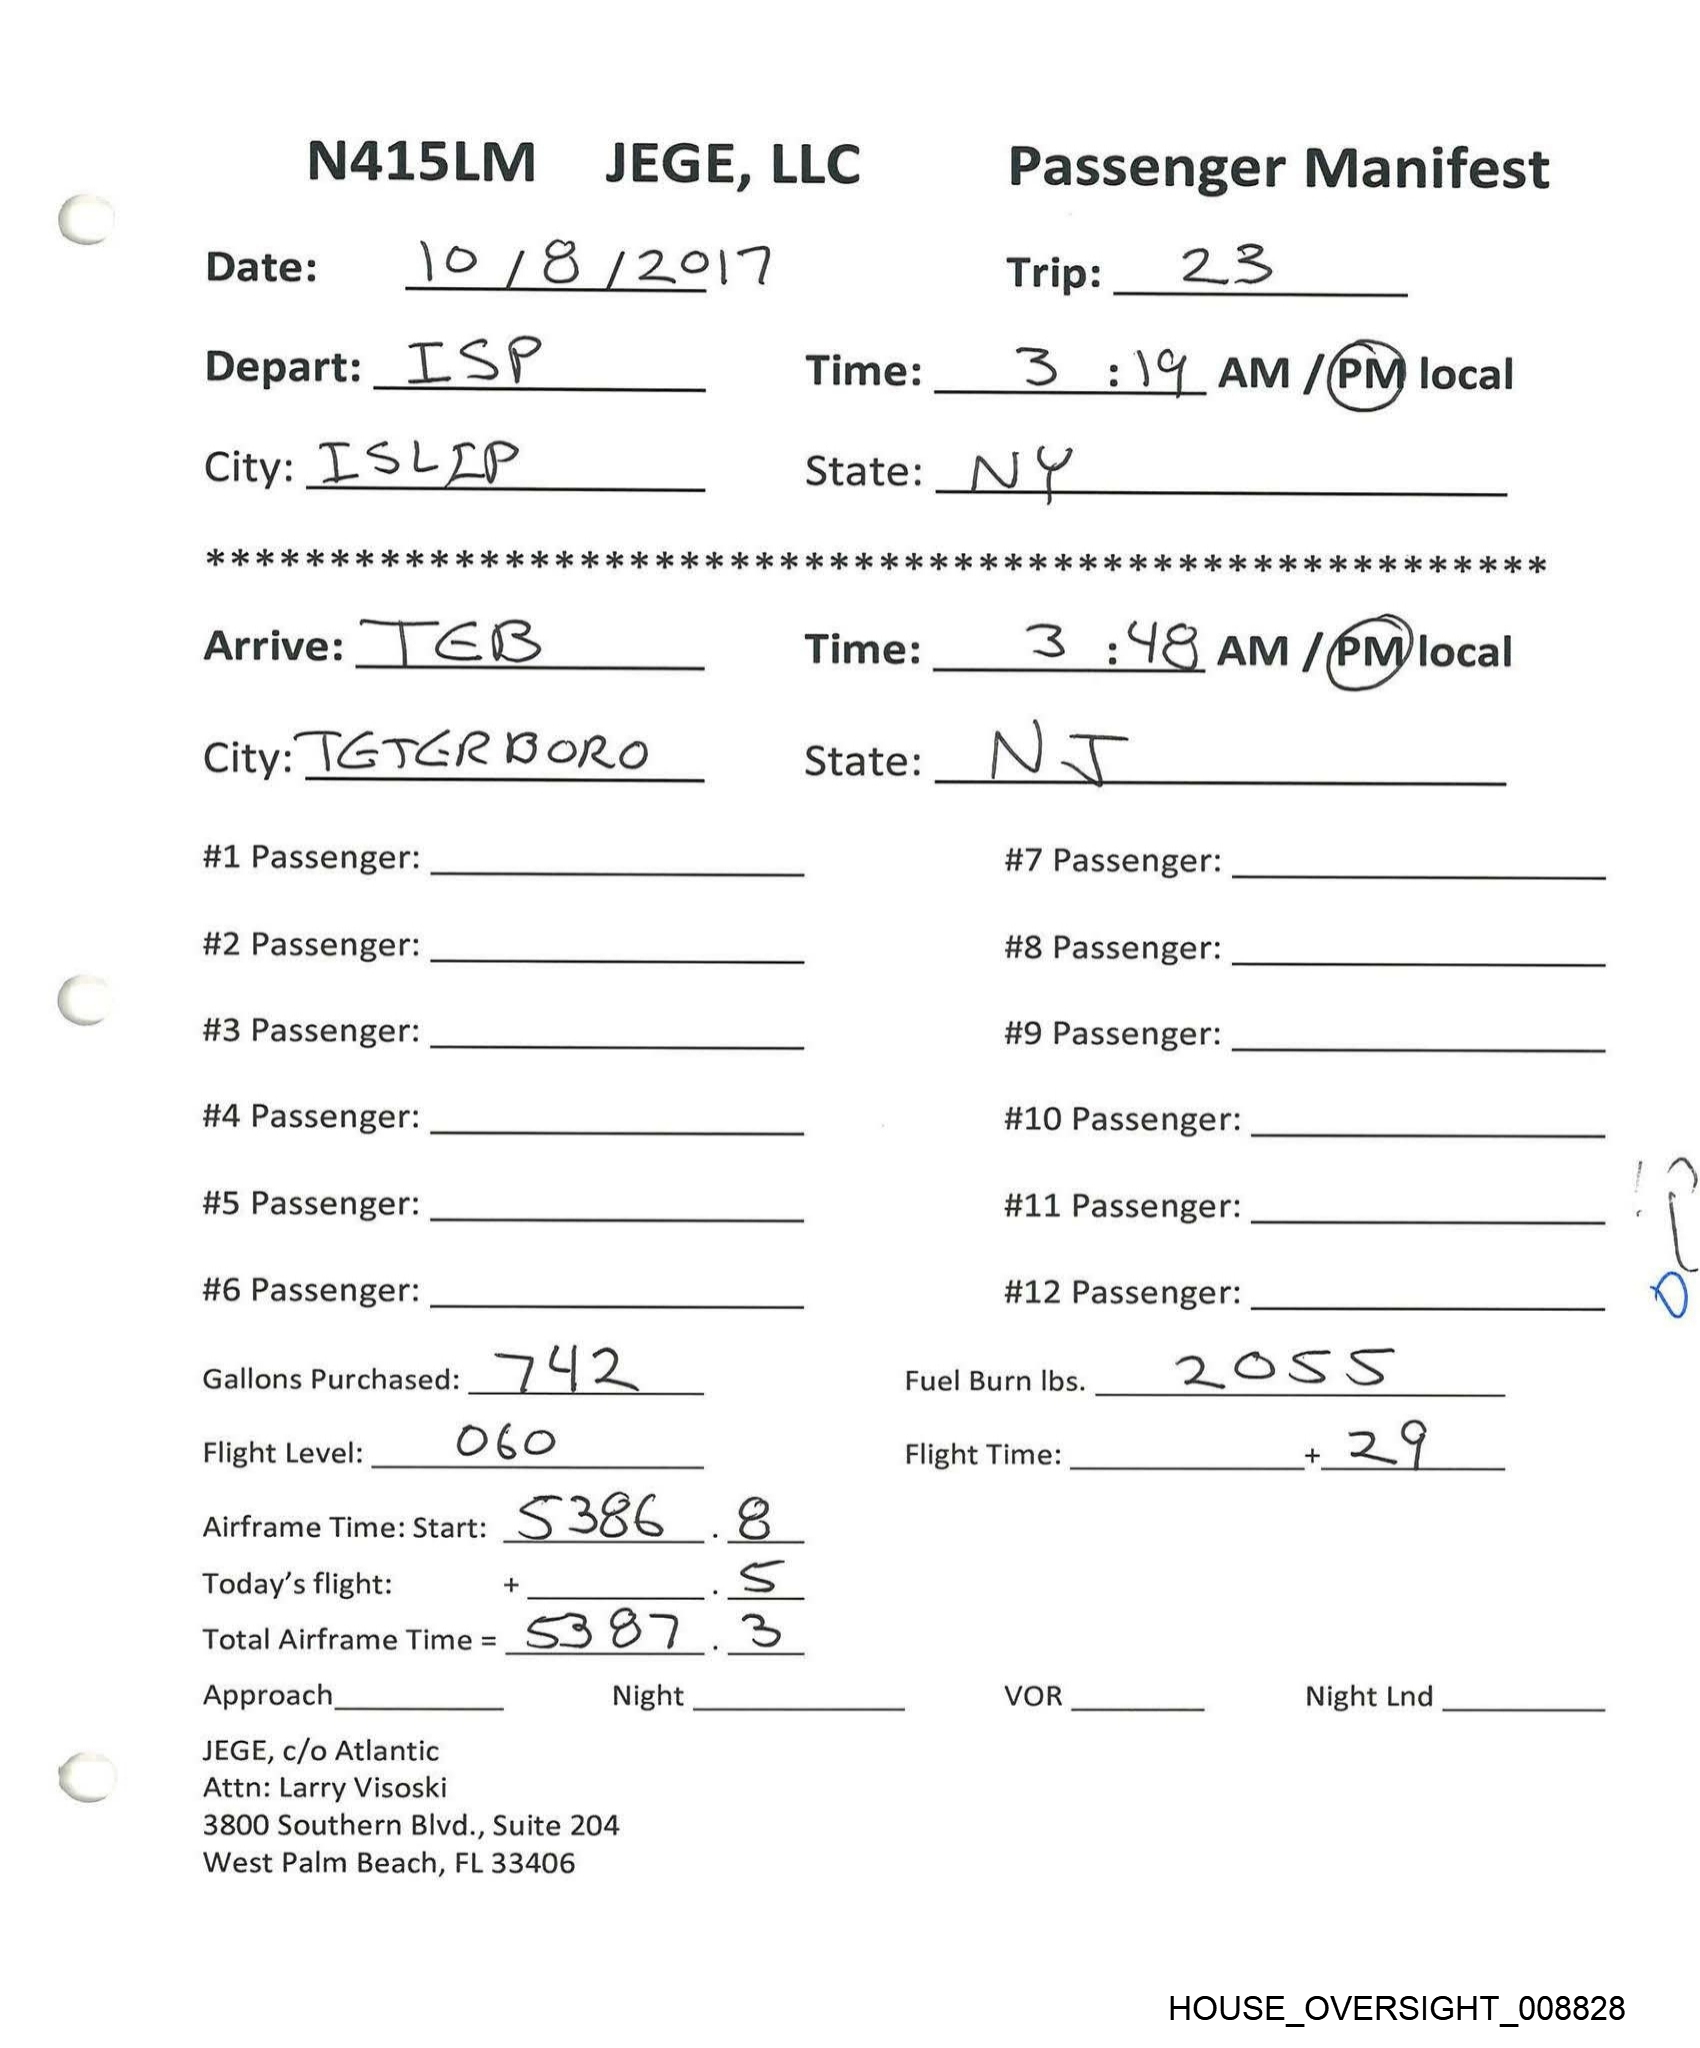 N415LM JEGE, LLC Passenger Manifest
Date: 10/8/2017 Trip: 23
Depart: ISP Time: 3:19 AM / PM local
City: ISLIP State: NY
******************************************************
Arrive: TEB Time: 3:48 AM / PM local
City: TETERBORO State: NJ
#1 Passenger: #7 Passenger:
#2 Passenger: #8 Passenger:
#3 Passenger: #9 Passenger:
#4 Passenger: #10 Passenger:
#5 Passenger: #11 Passenger:
#6 Passenger: #12 Passenger:
Gallons Purchased: 742 Fuel Burn lbs. 2055
Flight Level: 060 Flight Time: + 29
Airframe Time: Start: 5386 . 8
Today's flight: + . 5
Total Airframe Time = 5387 . 3
Approach Night VOR Night Lnd
JEGE, c/o Atlantic
Attn: Larry Visoski
3800 Southern Blvd., Suite 204
West Palm Beach, FL 33406
HOUSE_OVERSIGHT_008828